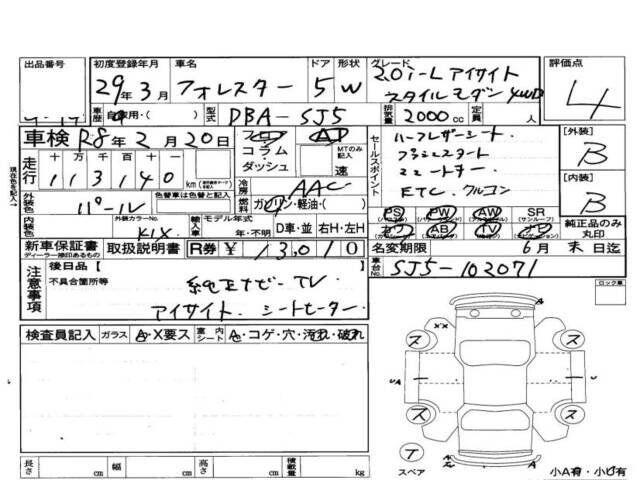 出品番号
初度登録年月 車名 ドア 形状 グレード 評価点
29年3月 フォレスター 5 W 2.0i-L アイサイト
スタイルモダン 4WD
4
車歴 自家用・( ) 型式 DBA-SJ5 排気量 2000cc 定員 人
車検 R8年2月20日 フロア AT
コラム・ダッシュ MTのみ記入 速
セールスポイント ハーフレザーシート
プッシュスタート
ETC. クルコン
[外装] B
[内装] B
走行 十 万 千 百 十 一
113140 km
冷房 AAC
外装色 パール 色替車は色替と記入 燃料 ガソリン・軽油・( )
PS PW AW SR (サンルーフ)
カワ AB TV ナビ
純正品のみ丸印
内装色 外装カラーNo. K1X 輸入車 モデル年式 年・不明 D車・並 右H・左H
新車保証書 ディーラー捺印あるもの 取扱説明書 R券 ¥13,010
名変期限 6月末日迄
車台No. SJ5-102071
注意事項 後日品【 】
不具合箇所等 純正ナビ-TV
アイサイト. シートヒーター
ロック車
検査員記入 ガラス A・X要ス 室内シート A・コゲ・穴・汚れ・破れ
A
XX
ス ス
UA U
ス ス
T
スペア
A
長さ cm 幅 cm 高さ cm 積載量 kg
小A有・小U有